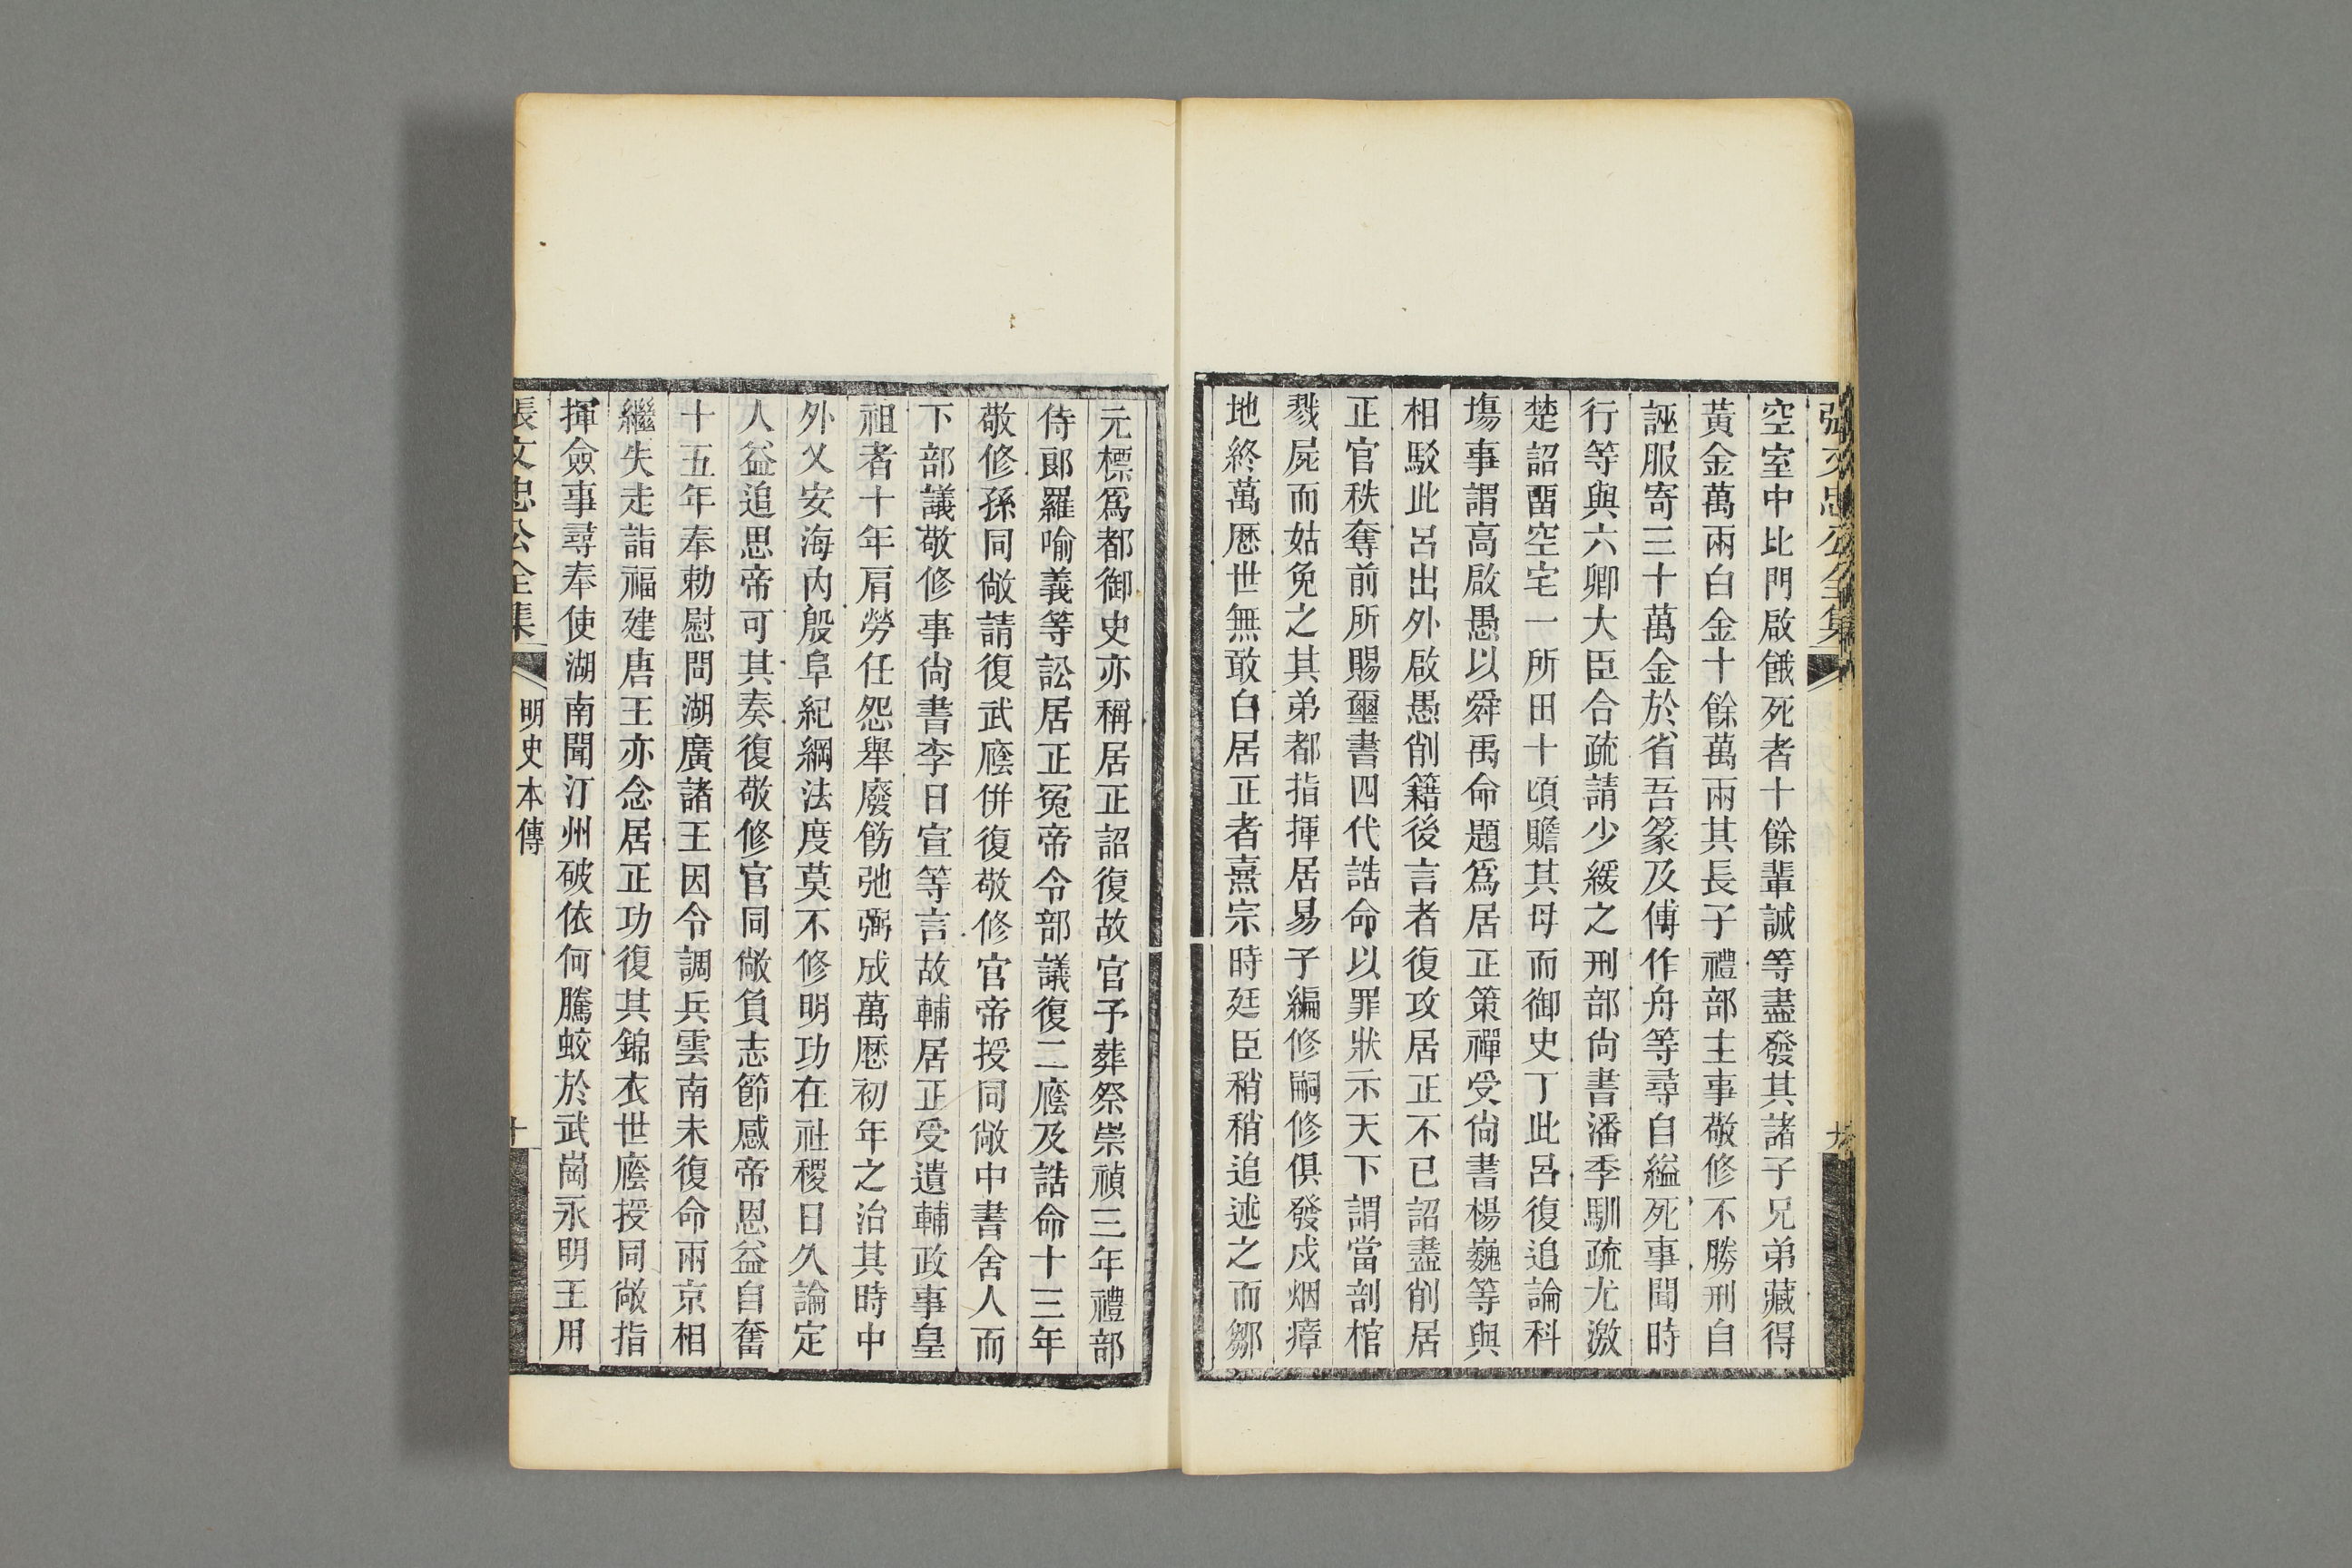 空室中比門啟餓死者十餘輩誠等盡發其諸子兄弟藏得
黃金萬兩白金十餘萬兩其長子禮部主事敬修不勝刑自
誣服寄三十萬金於省吾篆及傅作舟等尋自縊死事聞時
行等與六卿大臣合疏請少緩之刑部尚書潘季馴疏尤激
楚詔畱空宅一所田十頃贍其母而御史丁此呂復追論科
塲事謂高啟愚以舜禹命題爲居正策禪受尚書楊巍等與
相駁此呂出外啟愚削籍後言者復攻居正不已詔盡削居
正官秩奪前所賜璽書四代誥命以罪狀示天下謂當剖棺
戮屍而姑免之其弟都指揮居易子編修嗣修俱發戍烟瘴
地終萬厯世無敢白居正者熹宗時廷臣稍稍追述之而鄒
元標爲都御史亦稱居正詔復故官予葬祭崇禎三年禮部
侍郎羅喻義等訟居正冤帝令部議復二廕及誥命十三年
敬修孫同敞請復武廕併復敬修官帝授同敞中書舍人而
下部議敬修事尚書李日宣等言故輔居正受遺輔政事皇
祖者十年肩勞任怨舉廢飭弛弼成萬厯初年之治其時中
外乂安海內殷阜紀綱法度莫不修明功在社稷日久論定
人益追思帝可其奏復敬修官同敞負志節感帝恩益自奮
十五年奉勅慰問湖廣諸王因令調兵雲南未復命兩京相
繼失走詣福建唐王亦念居正功復其錦衣世廕授同敞指
揮僉事尋奉使湖南聞汀州破依何騰蛟於武岡永明王用
張文忠公全集
明史本傳
十